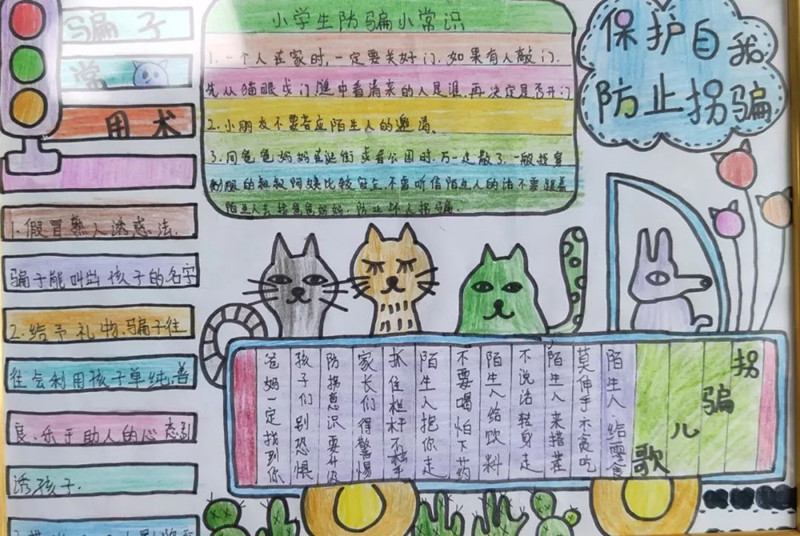 骗子
常
用术
1.假冒熟人诱惑法.
骗子能叫出孩子的名字
2.给予礼物.骗子往
往会利用孩子单纯.善
良.乐于助人的心态引
诱孩子.
小学生防骗小常识
1.一个人在家时,一定要关好门.如果有人敲门.
先从猫眼或门缝中看清来的人是谁.再决定是否开门
2.小朋友不要答应陌生人的邀请。
3.同爸爸妈妈在逛街或者公园时.万一走散了.一般找穿
制服的叔叔阿姨比较安全.不要听信陌生人的话不要跟着
陌生人去找爸爸妈妈.防止坏人拐骗.
保护自我
防止拐骗
拐骗儿歌
陌生人给零食
莫伸手不贪吃
陌生人来搭茬
不说话转身走
陌生人给饮料
不要喝怕下药
陌生人把你走
抓住栏杆不松手
家长们得警惕
防拐意识要升级
孩子们别恐惧
爸妈一定找到你